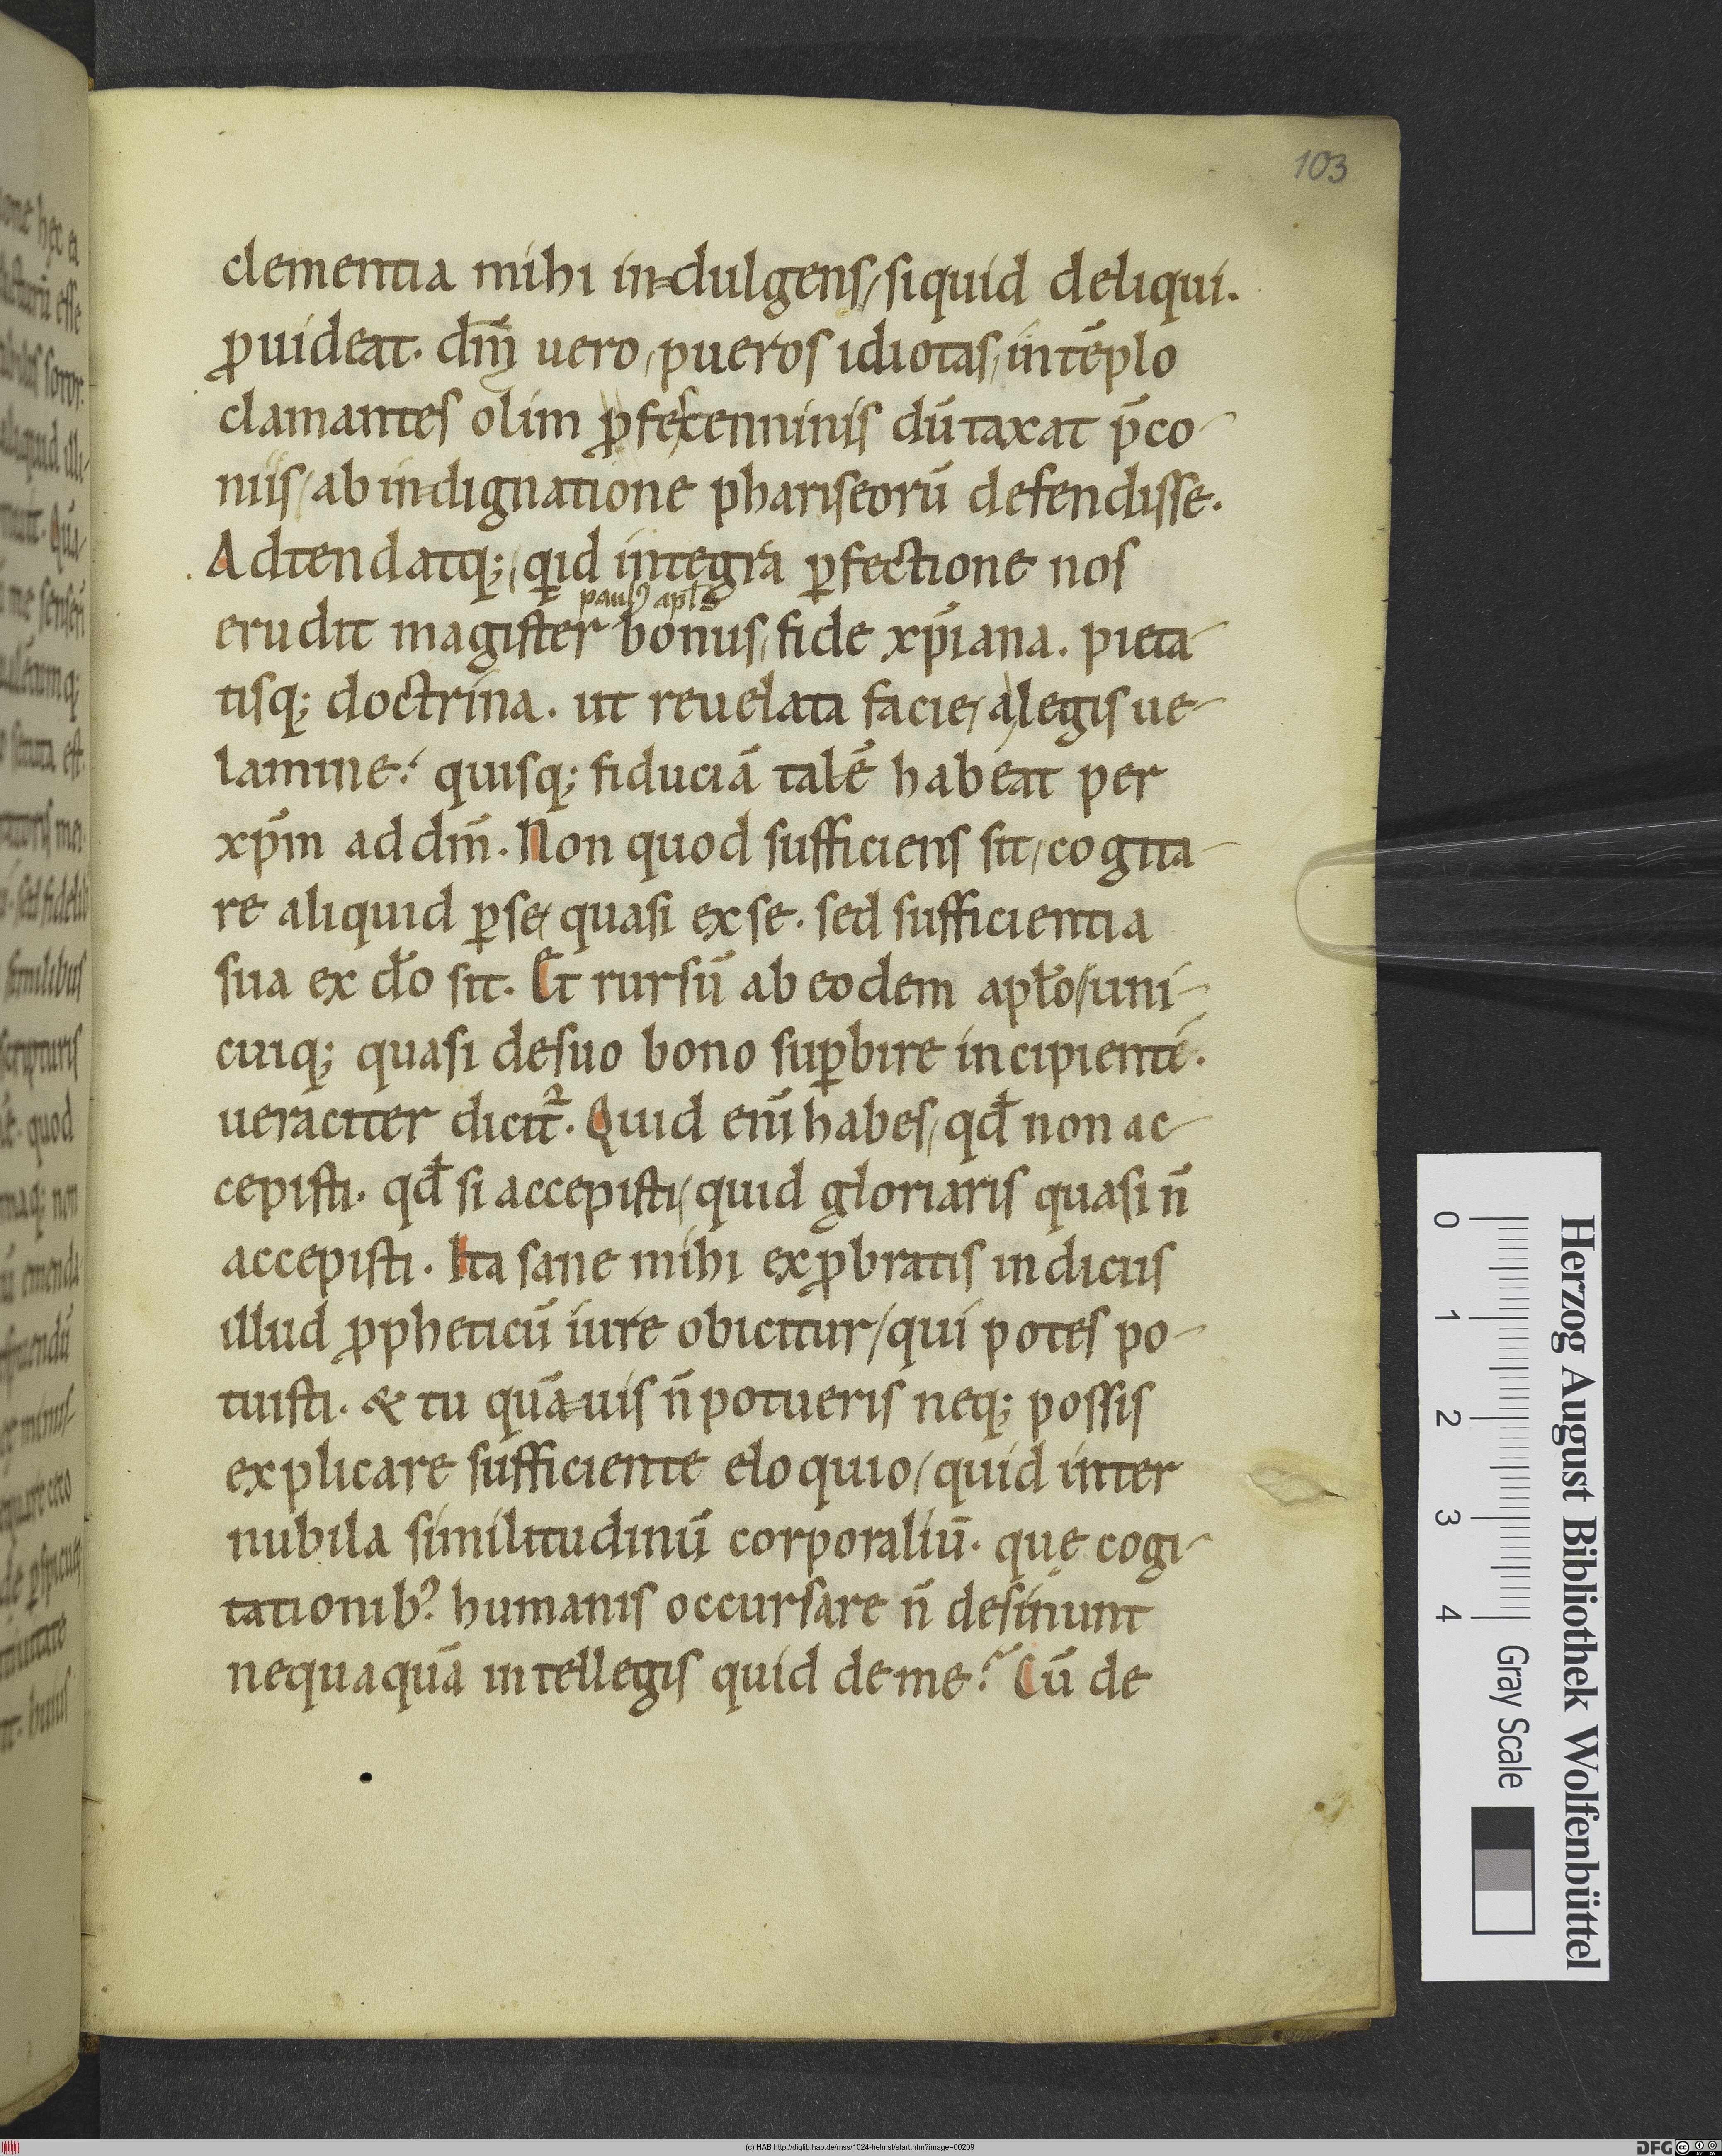 103
clementia mihi indulgens, siquid deliqui.
ꝓuideat. dm̅ uero, pueros idiotas, in te̅plo
clamantes olim ꝓ fescenninis du̅taxat p̅co-
niis, ab indignatione phariseoru̅ defendisse.
Adtendatq;, qid integra ꝑfectione nos
paul᾿ apl̅s
erudit magister bonus, fide xp̅iana. pieta-
tisq; doctrina. ut reuelata facie, a legis ue-
lamine? quisq; fiducia̅ tale̅ habeat per
xp̅m ad dm̅. Non quod sufficiens sit, cogita-
re aliquid ꝑ se, quasi ex se. sed sufficientia
sua ex do̅ sit. Et rursu̅ ab eodem apl̅o, uni-
cuiq; quasi de suo bono suꝑbire incipienti.
ueraciter dicit᷑. Quid eni̅ habes, qd̅ non ac-
cepisti. qd̅ si accepisti, quid gloriaris quasi n̅
accepisti. Ita sane mihi exꝓbratis indiciis
illud ꝓpheticu̅ iure obicitur, qui potes po-
tuisti. & tu qua̅uis n̅ potueris neq; possis
explicare sufficiente eloquio, quid inter
nubila similitudinu̅ corporaliu̅. quę cogi-
tationib᾿. humanis occursare n̅ desinunt
nequaqua̅ intellegis quid de me? Cu̅ de
Herzog August Bibliothek Wolfenbüttel
0 1 2 3 4 Gray Scale
(c) HAB http://diglib.hab.de/mss/1024-helmst/start.htm?image=00209
DFG